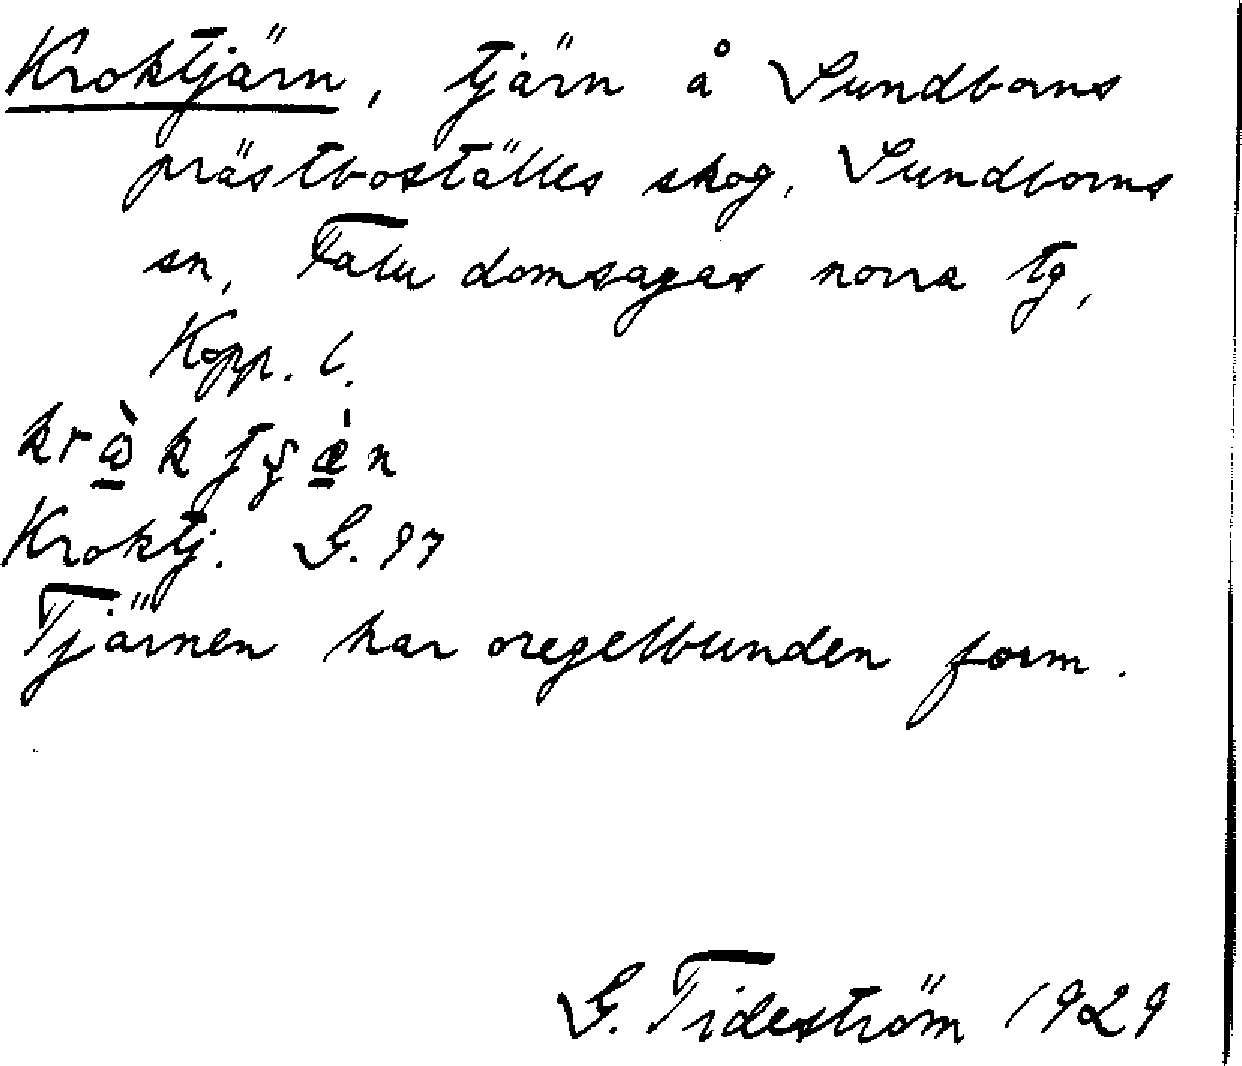 Kroktjärn, tjärn å Sundborns
prästboställes skog, Sundborns
sn, Falu domsagas norra tg,
Kopp. l.
Kroktj. G. 97
Tjärnen har oregelbunden form.
G. Tideström 1929